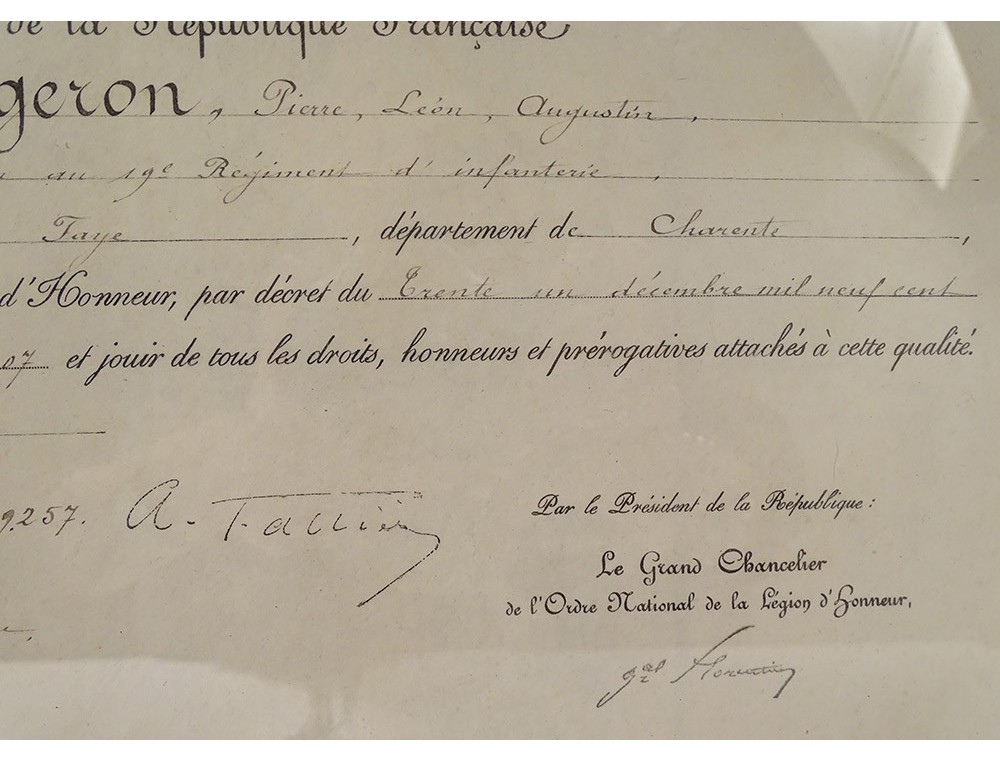 de la République Française
geron, Pierre, Léon, Augustin,
au 19e Régiment d'infanterie,
Taye, département de Charente,
d'Honneur, par décret du Trente un décembre mil neuf cent
07 et jouir de tous les droits, honneurs et prérogatives attachés à cette qualité.
9.257. A. Fallières
Par le Président de la République:
Le Grand Chancelier
de l'Ordre National de la Légion d'Honneur,
gal Florentin